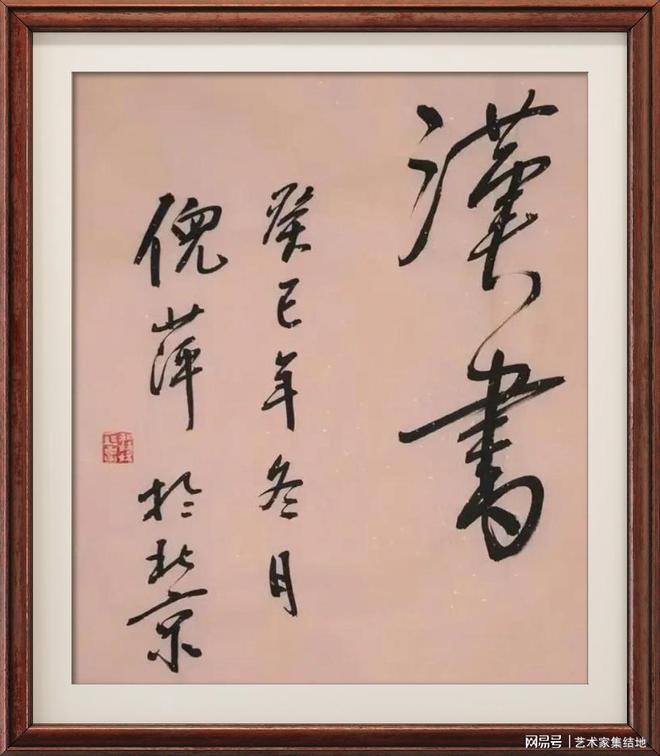 漢書
癸巳年冬月
倪萍於北京
网易号 | 艺术家集结地